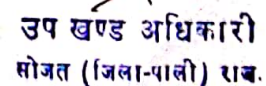 उप खण्ड अधिकारी
सोजत (जिला-पाली) राज.